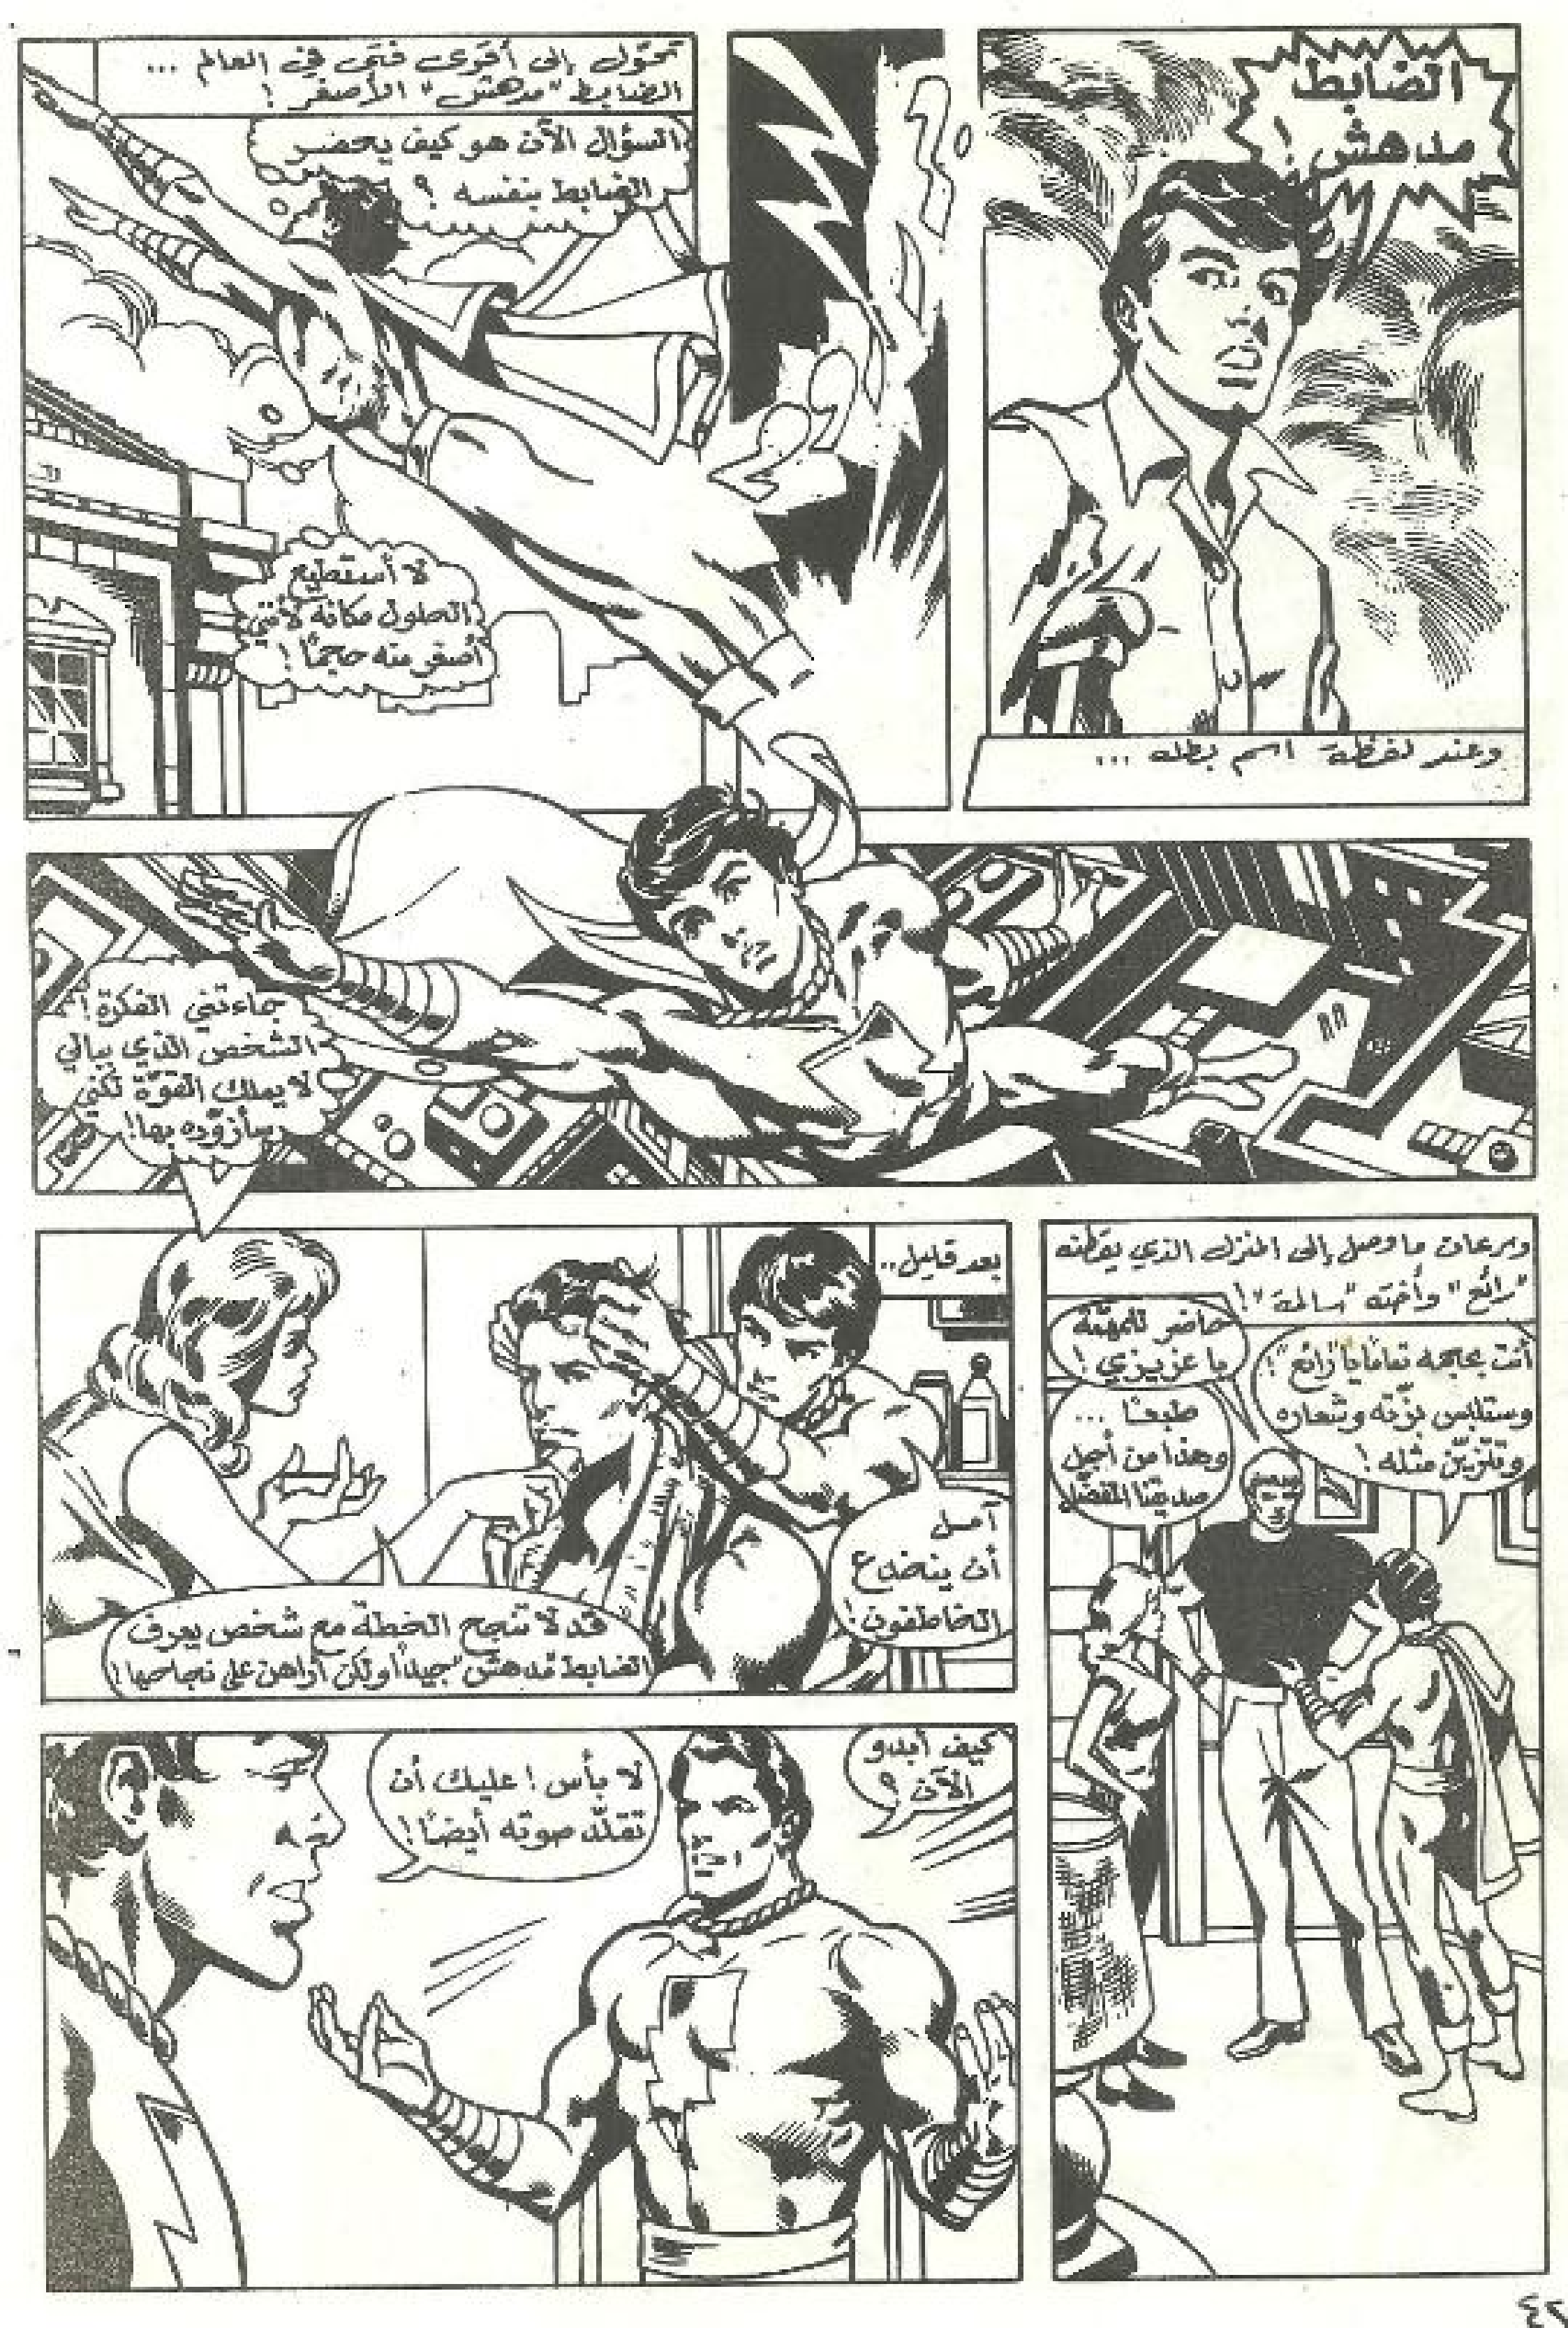 الضابط
مدهش!
وعند لفظه اسم بطله ...
تحوّل إلى أقوى فتى في العالم ...
الضابط "مدهش" الأصغر!
السؤال الآن هو كيف يحضر
الضابط بنفسه؟
لا أستطيع
الحلول مكانه لأنني
أصغر منه حجمًا!
جاءتني الفكرة!
الشخص الذي ببالي
لا يملك القوّة لكني
سأزوّده بها!
وسرعان ما وصل إلى المنزل الذي يقطنه
"رائع" وأخته "سالمة"!
أنت بحجمه تمامًا يا "رائع"!
وستلبس بزّته وشعاره
وتتزيّن مثله!
حاضر للمهمّة
يا عزيزي!
طبعًا ...
وهذا من أجل
صديقنا المفضّل
بعد قليل..
آمل
أن ينخدع
الخاطفون!
قد لا تنجح الخطة مع شخص يعرف
الضابط "مدهش" جيدًا ولكن أراهن على نجاحها!
كيف أبدو
الآن؟
لا بأس! عليك أن
تقلّد صوته أيضًا!
٤٢